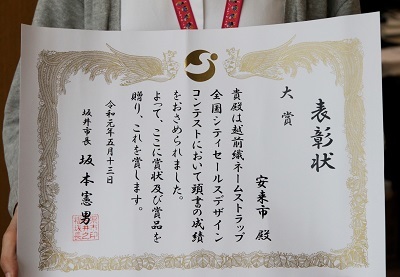 表彰状
大賞
安来市 殿
貴殿は越前織ネームストラップ
全国シティセールスデザイン
コンテストにおいて頭書の成績
をおさめられました。
よって、ここに賞状及び賞品を
贈り、これを賞します。
令和元年五月十三日
坂井市長 坂本憲男